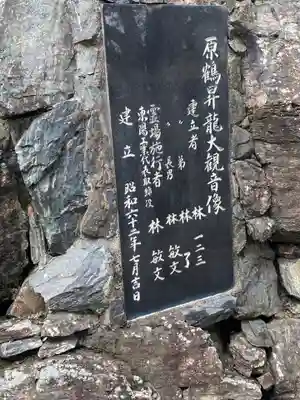 原鶴昇龍大観音像
建立者 林 一二三
〃 弟 林 了
〃 長男 林 敏文
霊場施行者
東陽工業代表取締役 林 敏文
建立 昭和六十三年七月吉日